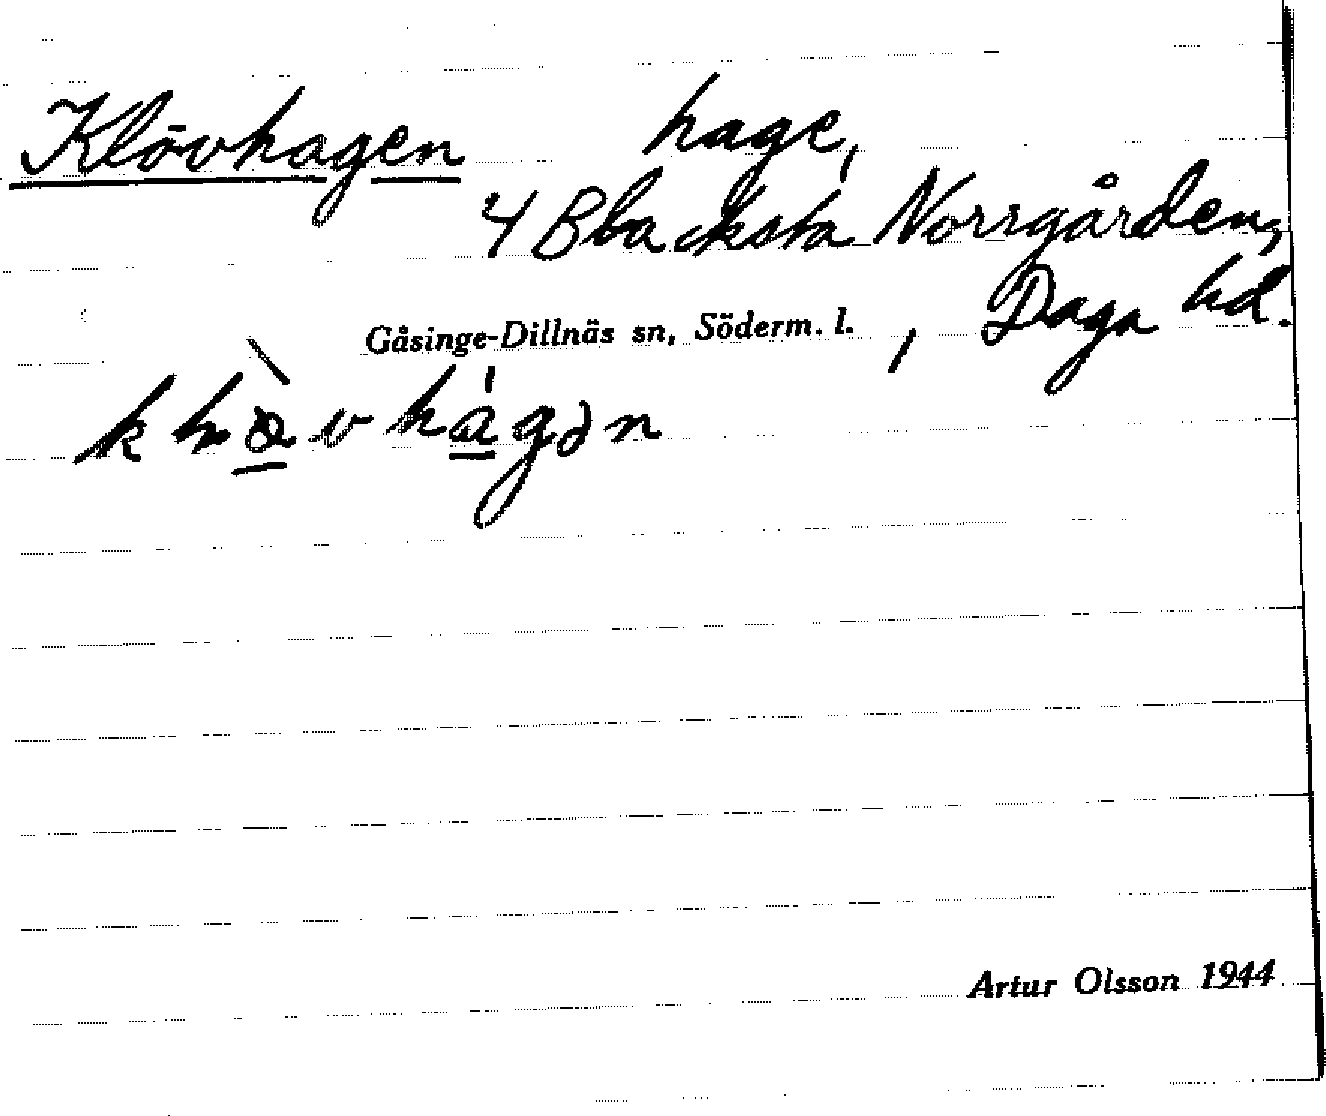 Klövhagen hage,
4 Blacksta Norrgården,
Gåsinge-Dillnäs sn, Söderm. l., Daga hd.
Artur Olsson 1944